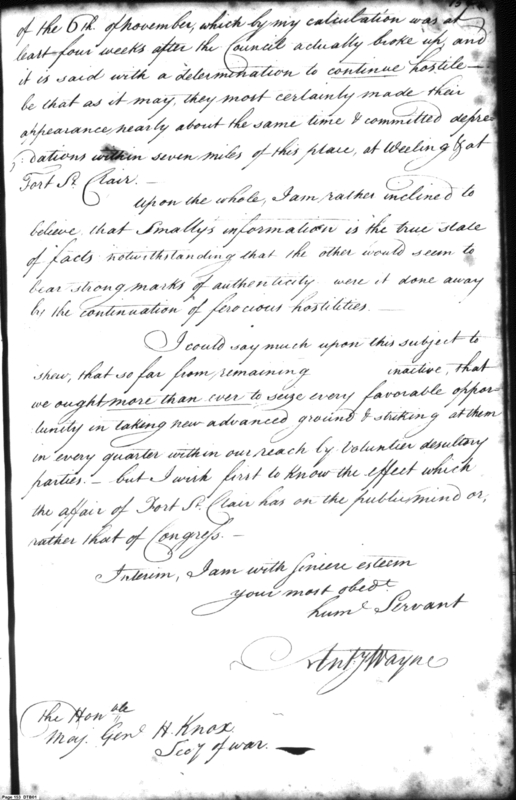 of the 6th. of November, which by my calculation was at
least four weeks after the Council actually broke up, and
it is said with a determination to continue hostile —
be that as it may, they most certainly made their
appearance nearly about the same time & committed depre
dations within seven miles of this place, at Weeling & at
Fort St. Clair. —
upon the whole, I am rather inclined to
believe that Smally's information is the true state
of facts notwithstanding that the other would seem to
bear strong marks of authenticity were it done away
by the continuation of ferocious hostilities. —
I could say much upon this subject to
shew, that so far from remaining inactive, that
we ought more than ever to seize every favorable oppor-
tunity in taking new advanced ground & striking at them
in every quarter within our reach by Voluntier desultory
parties. — but I wish first to know the effect which
the affair of Fort St. Clair has on the public mind or,
rather that of Congress. —
Interim, I am with sincere esteem
your most obedt
huml Servant
Anty Wayne
The Honble
Maj Genl H. Knox
Secy of war.
Page 153 DTB01